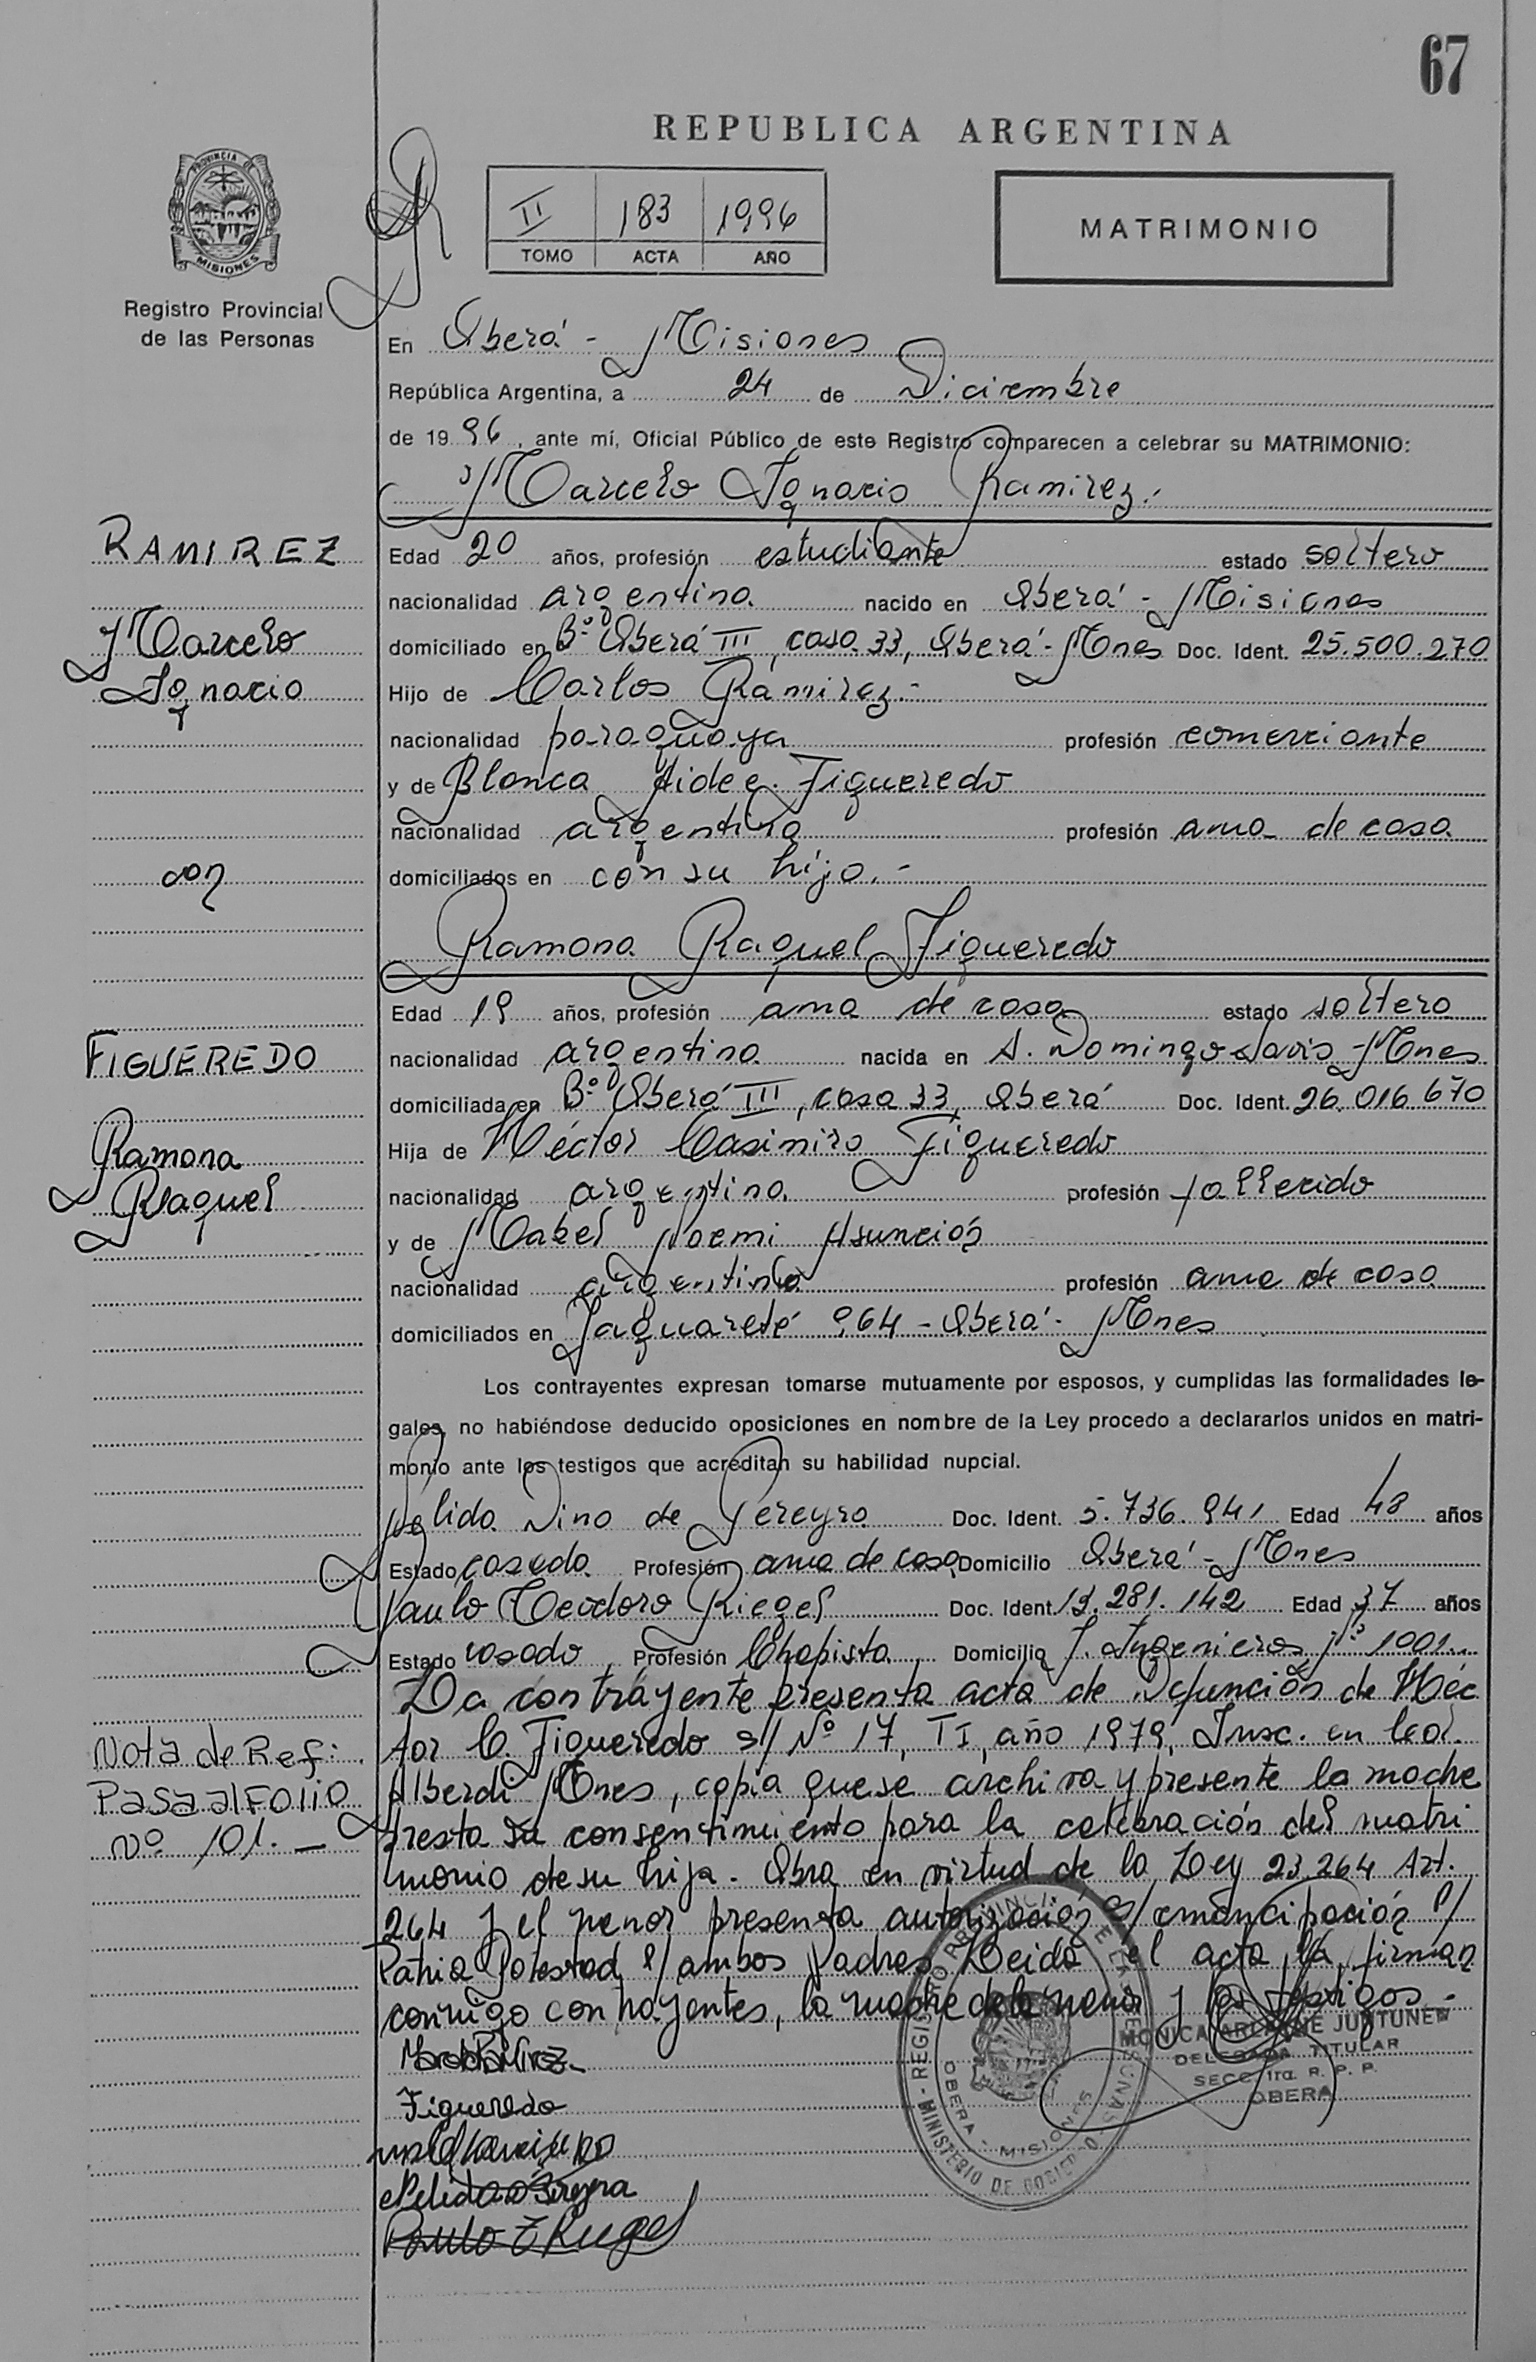 67
REPUBLICA ARGENTINA
PROVINCIA DE
MISIONES
Registro Provincial
de las Personas
II 183 1996
TOMO ACTA AÑO
MATRIMONIO
En Oberá - Misiones
República Argentina, a 24 de Diciembre
de 19 96, ante mí, Oficial Público de este Registro comparecen a celebrar su MATRIMONIO:
Marcelo Ignacio Ramirez.-
RAMIREZ
Marcelo
Ignacio
con
FIGUEREDO
Ramona
Raquel
Edad 20 años, profesión estudiante estado soltero
nacionalidad argentina nacido en Oberá - Misiones
domiciliado en Bº Oberá III, casa 33, Oberá - Mnes Doc. Ident. 25.500.270
Hijo de Carlos Ramirez.-
nacionalidad paraguaya profesión comerciante
y de Blanca Aidee Figueredo
nacionalidad argentina profesión ama de casa
domiciliados en con su hijo.-
Ramona Raquel Figueredo
Edad 19 años, profesión ama de casa estado soltera
nacionalidad argentina nacida en S. Domingo Savio - Mnes
domiciliada en Bº Oberá III, casa 33, Oberá Doc. Ident. 26.016.670
Hija de Héctor Casimiro Figueredo
nacionalidad argentina profesión fallecido
y de Mabel Noemi Asunción
nacionalidad argentina profesión ama de casa
domiciliados en Yaguareté 964 - Oberá - Mnes
Los contrayentes expresan tomarse mutuamente por esposos, y cumplidas las formalidades le-
gales, no habiéndose deducido oposiciones en nombre de la Ley procedo a declararlos unidos en matri-
monio ante los testigos que acreditan su habilidad nupcial.
Nélida Dino de Pereyra Doc. Ident. 5.736.941 Edad 48 años
Estado casada Profesión ama de casa Domicilio Oberá - Mnes
Paulo Teodoro Riegel Doc. Ident. 13.281.142 Edad 37 años
Estado casado Profesión Chapista Domicilio J. Ingenieros nº 1001
La contrayente presenta acta de Defunción de Héc
tor C. Figueredo s/ Nº 17, TI, año 1979, Insc. en Col.
Alberdi Mnes, copia que se archiva y presente la madre
presta su consentimiento para la celebración del matri
monio de su hija. Obra en virtud de la Ley 23.264 Art.
264 y el menor presenta autorización emancipación p/
Patria Potestad p/ ambos Padres. Leída el acta, la firman
conmigo contrayentes, la madre de la menor y los testigos.-
Nota de Ref:
Pasa al Folio
Nº 101.-
Ramirez
Figueredo
Nelida D Pereyra
Paulo T Riegel
REGISTRO PROVINCIAL DE LAS PERSONAS
OBERA - MISIONES
MINISTERIO DE GOBIERNO
MONICA ARLENNE JUNTUNEN
DELEGADA TITULAR
SECC. 1ra. R. P. P.
OBERA